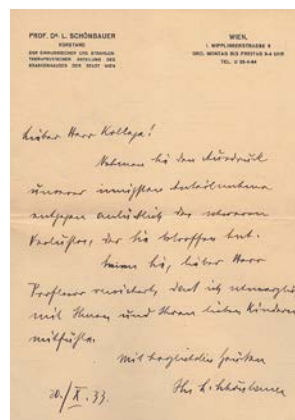 PROF. Dr. L. SCHÖNBAUER
VORSTAND
DER CHIRURGISCHEN UND STRAHLEN-
THERAPEUTISCHEN ABTEILUNG DES
KRANKENHAUSES DER STADT WIEN
WIEN,
I. WIPPLINGERSTRASSE
ORD. MONTAG BIS FREITAG
TEL. U
Lieber Herr Kollege!
Nehmen Sie den Ausdruck
unserer innigsten Anteilnahme
entgegen anläßlich des schweren
Verlustes, der Sie betroffen hat.
Seien Sie, lieber Herr
Professor versichert, daß ich
mit Ihnen und Ihren lieben Kindern
mitfühle.
Mit herzlichen Grüßen
Ihr L. Schönbauer
20./X. 33.